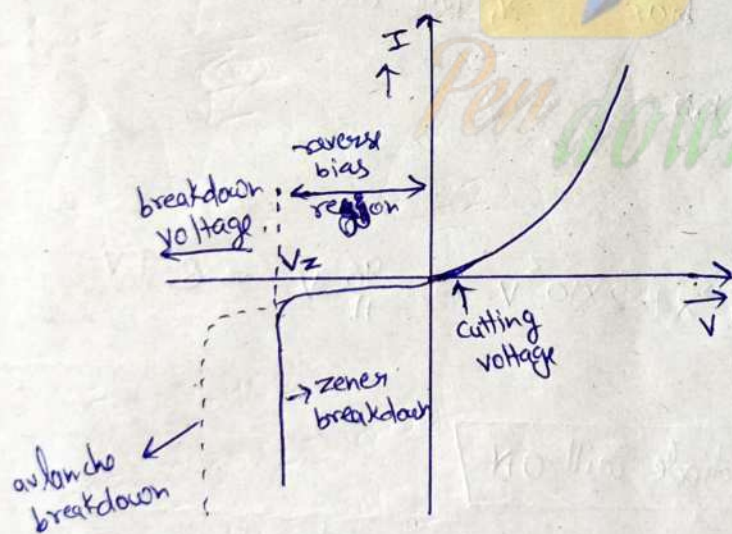 I
Pen down
reverse
bias
region
breakdown
voltage
Vz
V
cutting
voltage
→ zener
breakdown
avlanche
breakdown